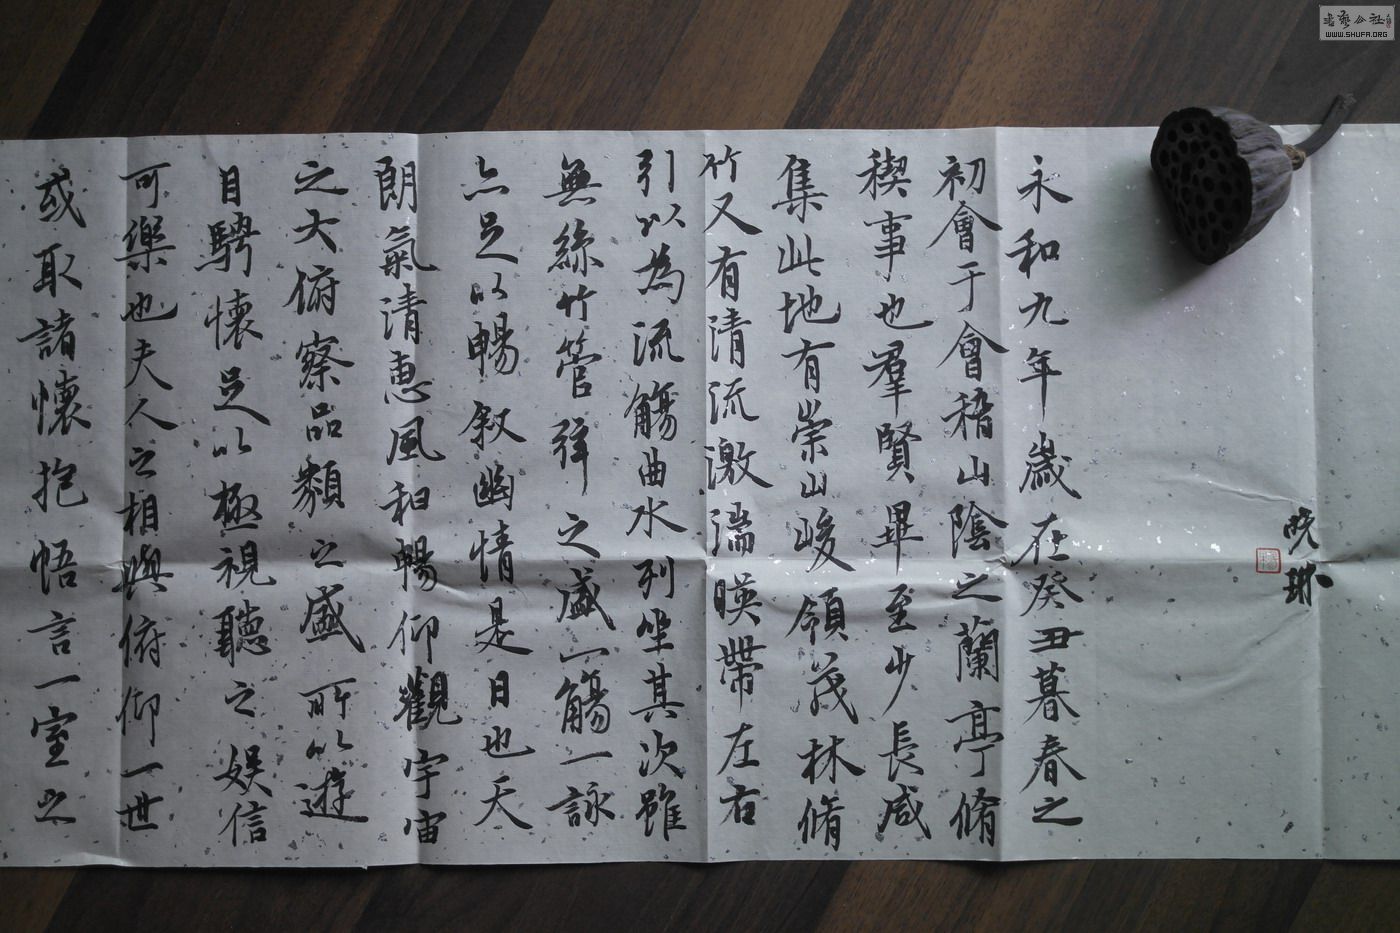 永和九年歲在癸丑暮春之
初會于會稽山陰之蘭亭脩
稧事也羣賢畢至少長咸
集此地有崇山峻領茂林脩
竹又有清流激湍暎帶左右
引以為流觴曲水列坐其次雖
無絲竹管弦之盛一觴一詠
亦足以暢叙幽情是日也天
朗氣清惠風和暢仰觀宇宙
之大俯察品類之盛所以遊
目騁懷足以極視聽之娛信
可樂也夫人之相與俯仰一世
或取諸懷抱悟言一室之
書藝公社
WWW.SHUFA.ORG